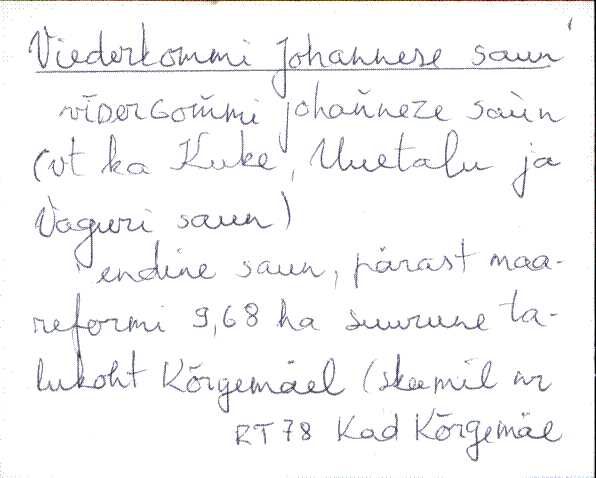 Viederkommi Johannese saun
vīDerGom̆mi johan̆neze saùn
(vt ka Kuke, Uuetalu ja
Vaguri saun)
endine saun, pärast maa-
reformi 9,68 ha suurune ta-
lukoht Kõrgemäel (skeemil nr
RT 78 Kad Kõrgemäe